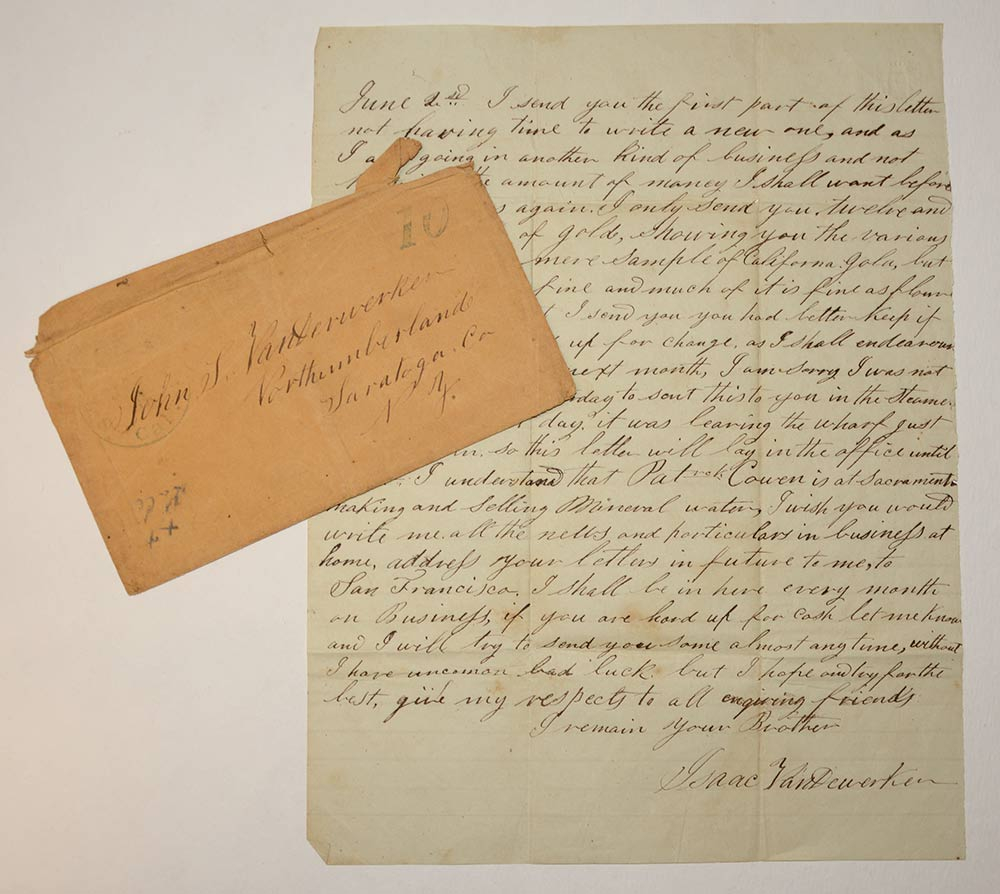 June 2nd I send you the first part of this letter
not having time to write a new one, and as
I a going in another kind of business and not
the amount of money I shall want before
again. I only send you, twelve and
of gold, showing you the various
mere sample of Californa Gold, but
fine and much of it is fine as flour
I send you you had better keep if
up for change, as I shall endeavour
next month, I am sorry I was not
to sent this to you in the Steamer
day, it was leaving the wharf just
so this letter will lay in the office until
I understand that Patrck Cowen is at Sacramento
making and selling Mineral water, I wish you would
write me all the news and particulars in business at
home, address your letters in future to me, to
San Francisco. I shall be in here every month
on Business, if you are hard up for cash let me know
and I will try to send you some almost any time, without
I have uncomon bad luck. but I hope and try for the
best, give my respects to all enquiring friends
I remain Your Brother
Isaac VanDewerken
10
John S. VanDerwerken
Northumberland
Saratoga. Co
N. Y.
Cal